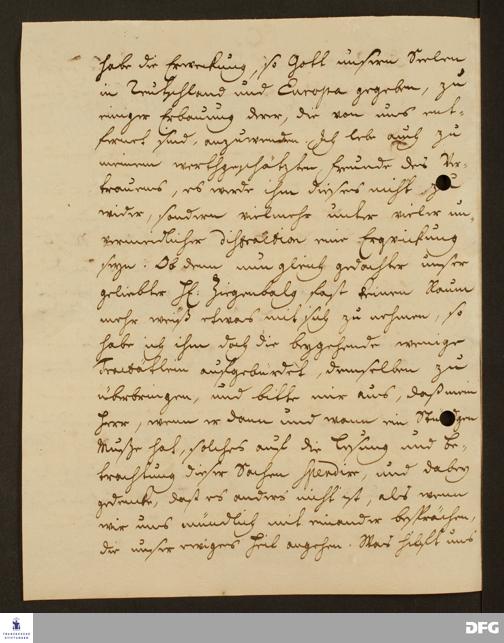 habe die Erweckung, so Gott unsern Seelen
in Teutschland und Europa gegeben, zu
einiger Erbauung derer, die von uns ent-
fernet sind, anzuwenden. Ich lebe auch zu
meinem werthgeschätzten Freunde des Ver-
trauens, es werde ihm dieses nicht zu
wider, sondern vielmehr unter vieler un-
vermeidlicher distraction eine Erquickung
seyn. Ob denn nun gleich gedachter unser
geliebter H. Ziegenbalg fast keinen Raum
mehr weiß etwas mit sich zu nehmen, so
habe ich ihm doch die beygehende wenige
Tractätlein aufgebürdet, demselben zu
überbringen, und bitte mir aus, daß mein
Herr, wenn er dann und wann ein Stündgen
Muße hat, solches auf die Lesung und Be-
trachtung dieser Sachen spendire, und dabey
gedencke, daß es anders nicht ist, als wenn
wir uns mündlich mit einander besprächen,
die unser ewiges Heil angehen. Was hilft uns
FRANCKESCHE
STIFTUNGEN
DFG